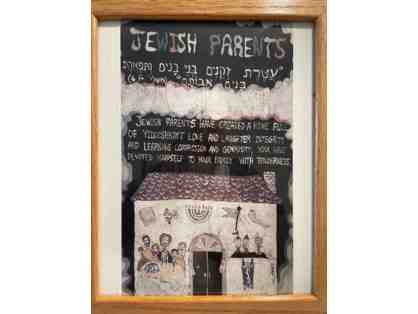 JEWISH PARENTS
"עטרת זקנים בני בנים ותפארת
בנים אבותם"
JEWISH PARENTS HAVE CREATED A HOME FULL
OF YIDDISHKEIT LOVE AND LAUGHTER INTEGRITY
AND LEARNING COMPASSION AND GENEROSITY, YOU HAVE
DEVOTED YOURSELF TO YOUR FAMILY WITH TENDERNESS